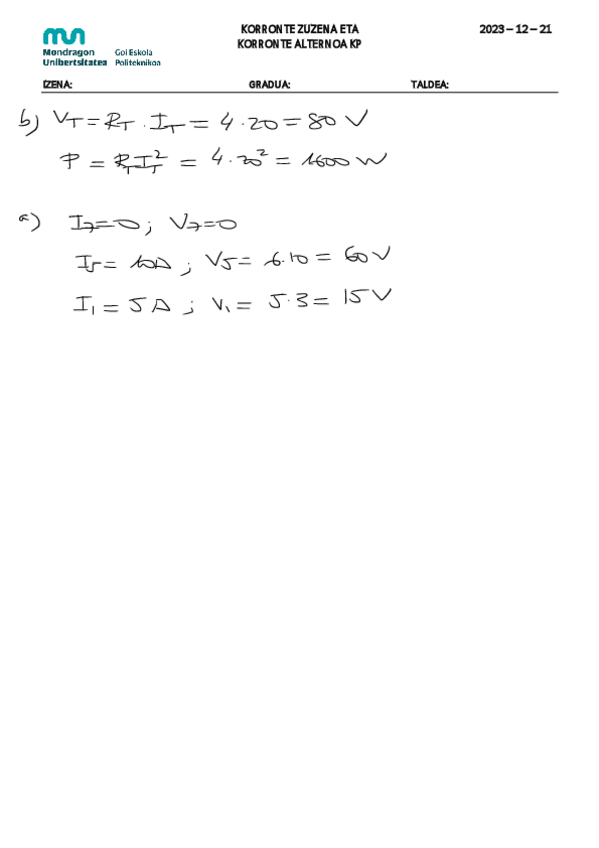 KORRONTE ZUZENA ETA
KORRONTE ALTERNOA KP
2023 – 12 – 21
mun
Mondragon
Unibertsitatea
Goi Eskola
Politeknikoa
IZENA: GRADUA: TALDEA:
b) V_T = R_T · I_T = 4 · 20 = 80 V
P = R_T I_T² = 4 · 20² = 1600 W
c) I_7 = 0 ; V_7 = 0
I_5 = 10 A ; V_5 = 6 · 10 = 60 V
I_1 = 5 A ; V_1 = 5 · 3 = 15 V